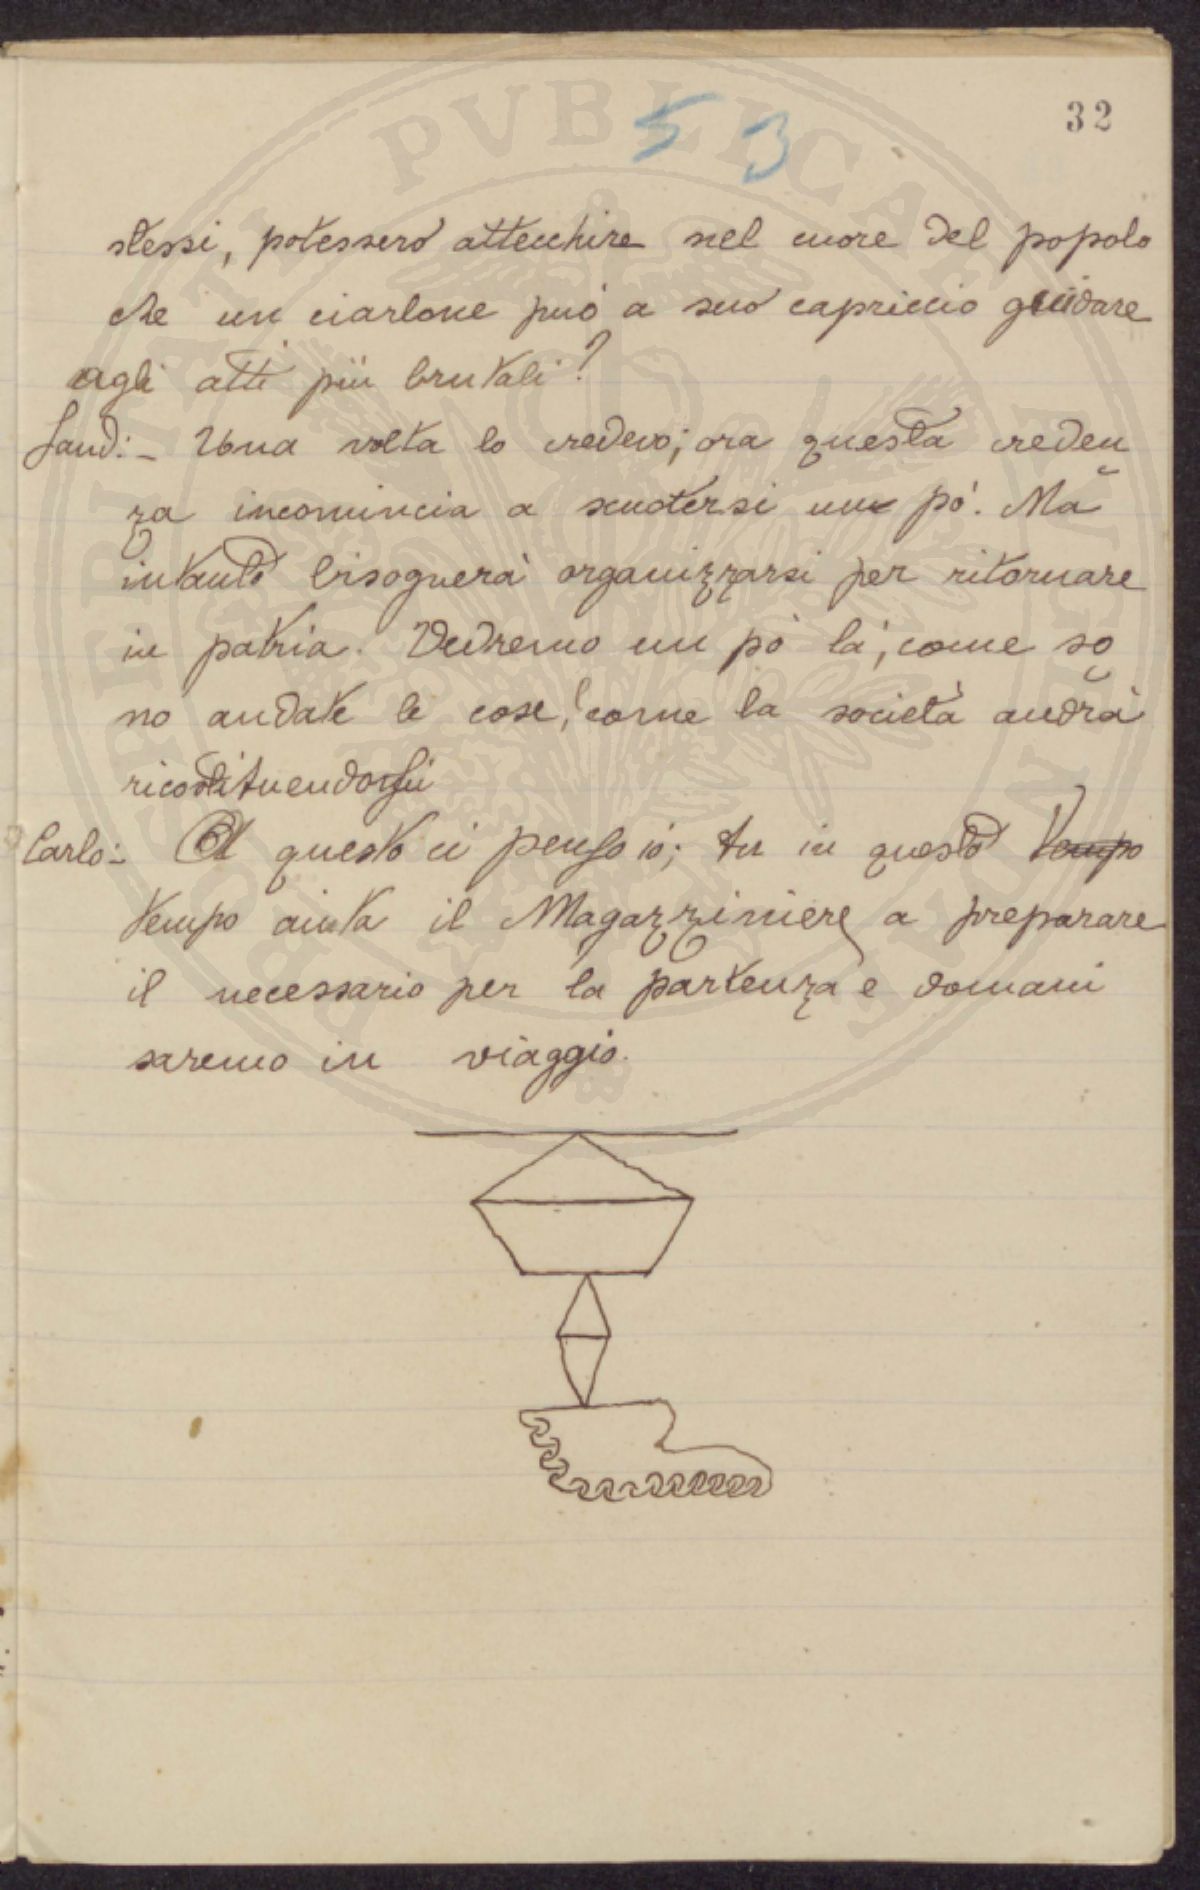 53
32
stessi, potessero attecchire nel cuore del popolo
che un ciarlone può a suo capriccio guidare
agli atti più brutali?
Land: - Una volta lo credevo; ora questa creden
za incomincia a scuotersi un pò. Ma
intanto bisognerà organizzarsi per ritornare
in patria. Vedremo un pò là, come so
no andate le cose, come la società andrà
ricostituendosi
Carlo: - A questo ci penso io; tu in questo tempo
tempo aiuta il Magazziniere a preparare
il necessario per la partenza e domani
saremo in viaggio.